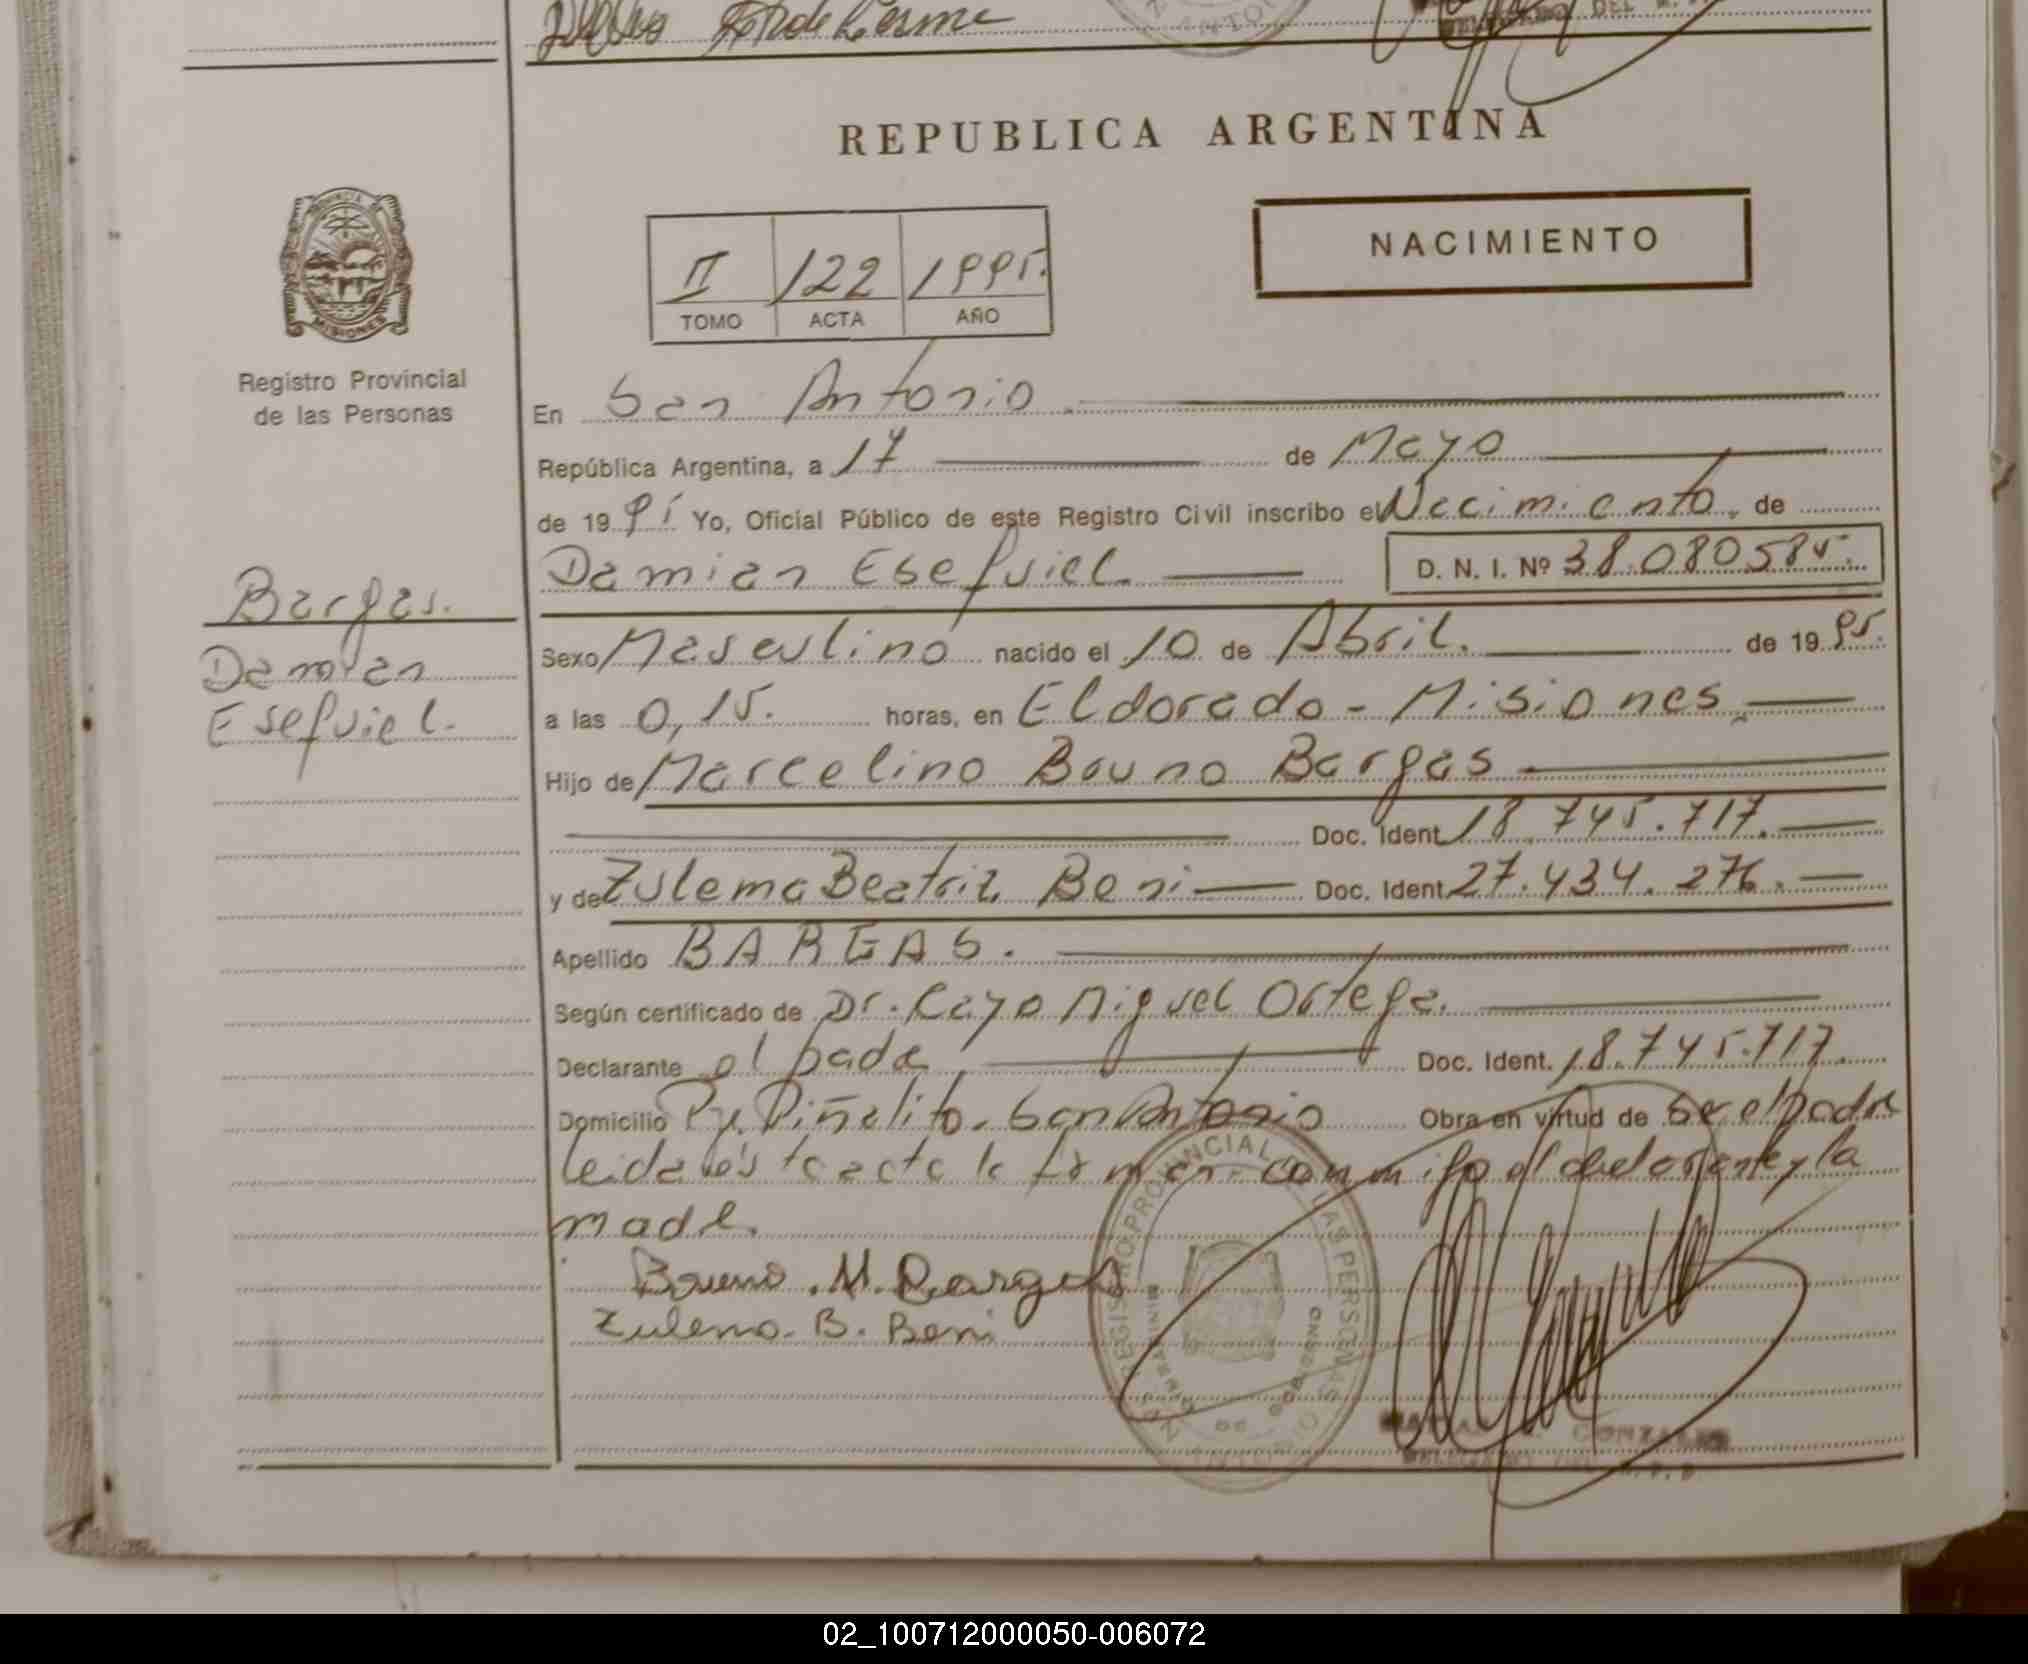 REPUBLICA ARGENTINA
NACIMIENTO
II 122 1995.
TOMO ACTA AÑO
PROVINCIA DE
MISIONES
Registro Provincial
de las Personas
En San Antonio
República Argentina, a 17 de Mayo
de 1995 Yo, Oficial Público de este Registro Civil inscribo el Nacimiento. de
Damian Esequiel. D. N. I. Nº 38.080585.
Bargas.
Damian
Esequiel.
Sexo Masculino nacido el 10 de Abril. de 1995.
a las 0,15. horas, en Eldorado - Misiones.
Hijo de Marcelino Bruno Bargas
Doc. Ident. 18.745.717.
y de Zulema Beatriz Beni Doc. Ident. 27.434.276.
Apellido BARGAS.
Según certificado de Dr. Cayo Miguel Ortega.
Declarante el padre Doc. Ident. 18.745.717.
Domicilio Piñalito. San Antonio Obra en virtud de ser el padre
leida esta acta la firman conmigo el declarante y la
madre.
Bruno .M. Bargas
Zulema. B. Beni
REGISTRO PROVINCIAL DE LAS PERSONAS
MINISTERIO DE GOBIERNO
SAN ANTONIO
GONZALEZ
DELEGADO DEL R.P.P
02_100712000050-006072